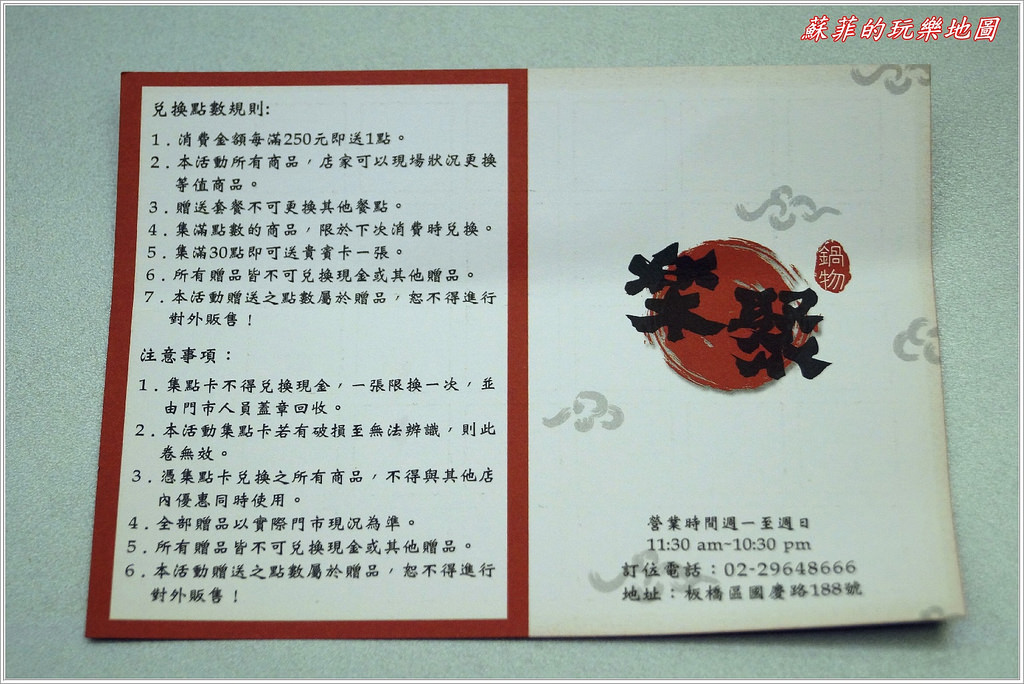 蘇菲的玩樂地圖
兌換點數規則:
1. 消費金額每滿250元即送1點。
2. 本活動所有商品，店家可以現場狀況更換
等值商品。
3. 贈送套餐不可更換其他餐點。
4. 集滿點數的商品，限於下次消費時兌換。
5. 集滿30點即可送貴賓卡一張。
6. 所有贈品皆不可兌換現金或其他贈品。
7. 本活動贈送之點數屬於贈品，恕不得進行
對外販售！
注意事項：
1. 集點卡不得兌換現金，一張限換一次，並
由門市人員蓋章回收。
2. 本活動集點卡若有破損至無法辨識，則此
卷無效。
3. 憑集點卡兌換之所有商品，不得與其他店
內優惠同時使用。
4. 全部贈品以實際門市現況為準。
5. 所有贈品皆不可兌換現金或其他贈品。
6. 本活動贈送之點數屬於贈品，恕不得進行
對外販售！
聚
鍋物
營業時間週一至週日
11:30 am~10:30 pm
訂位電話：02-29648666
地址：板橋區國慶路188號